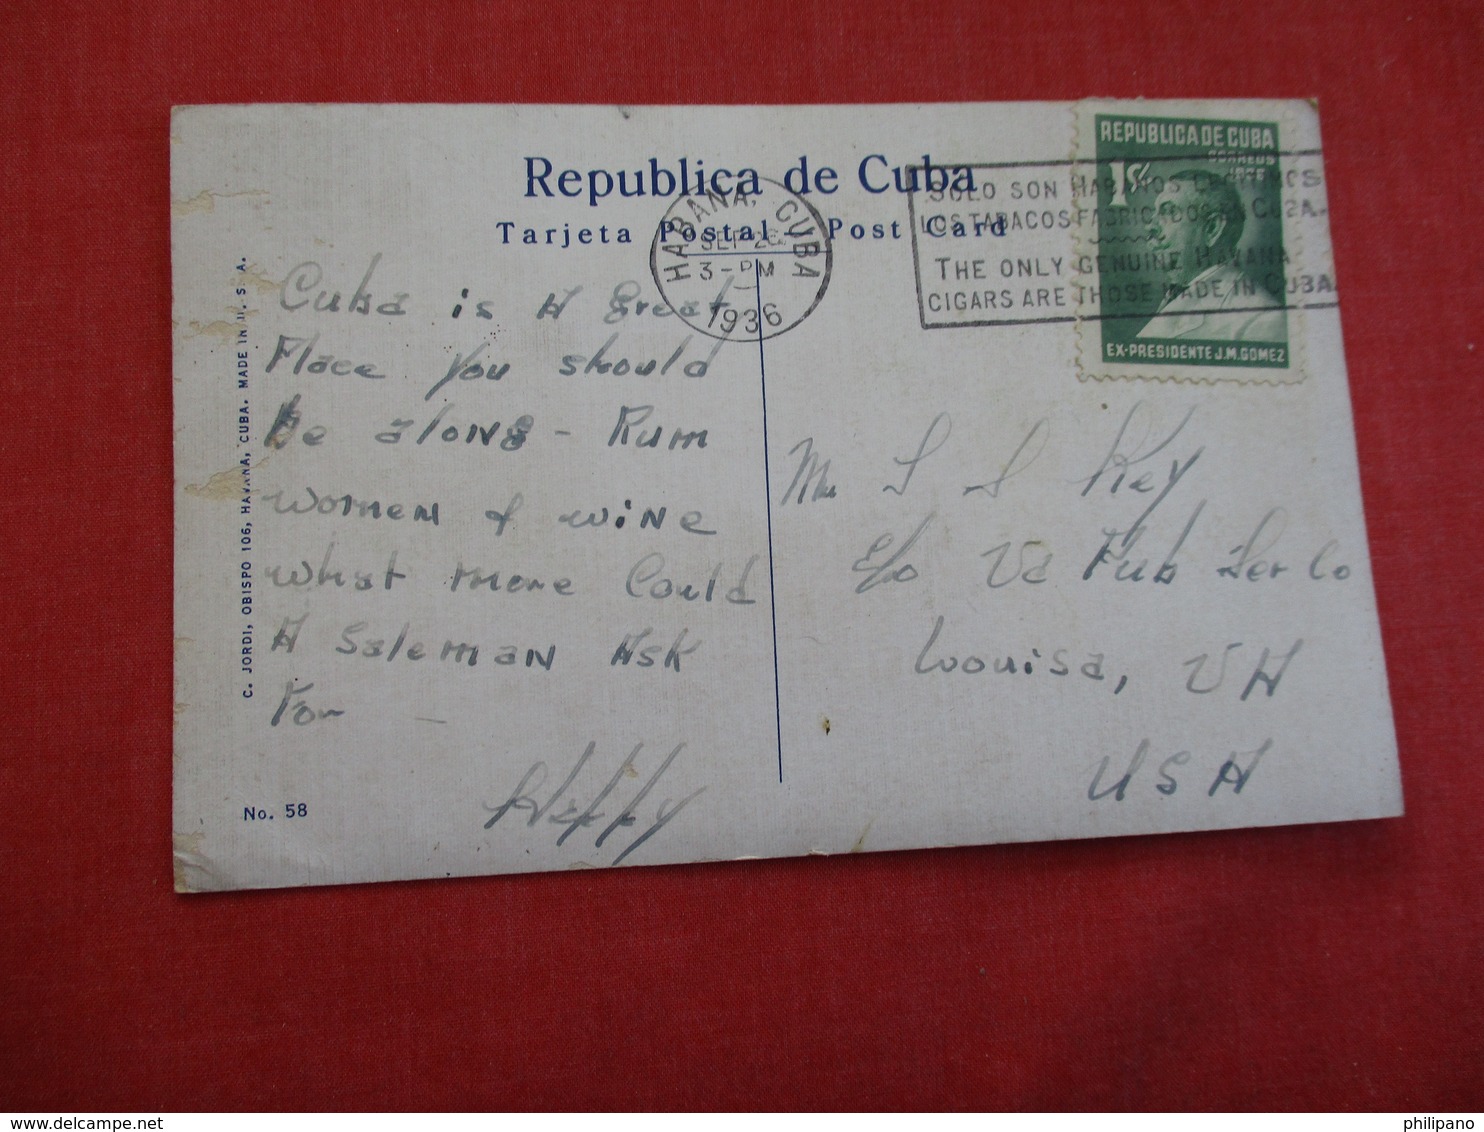 Republica de Cuba
Tarjeta Postal - Post Card
HABANA, CUBA
SEP 26
3-PM
1936
SOLO SON HABANOS LEGITIMOS
LOS TABACOS FABRICADOS EN CUBA.
THE ONLY GENUINE HAVANA
CIGARS ARE THOSE MADE IN CUBA.
REPUBLICA DE CUBA
CORREOS
1936
1¢
EX-PRESIDENTE J.M. GOMEZ
Cuba is A great
Place you should
be along - Rum
women & wine
what more Could
A Saleman Ask
For -
Heffy
Mr S S Key
c/o Va Pub Ser Co
Louisa, VA
USA
C. JORDI, OBISPO 106, HAVANA, CUBA. MADE IN U. S. A.
No. 58
delcampe.net
philipano